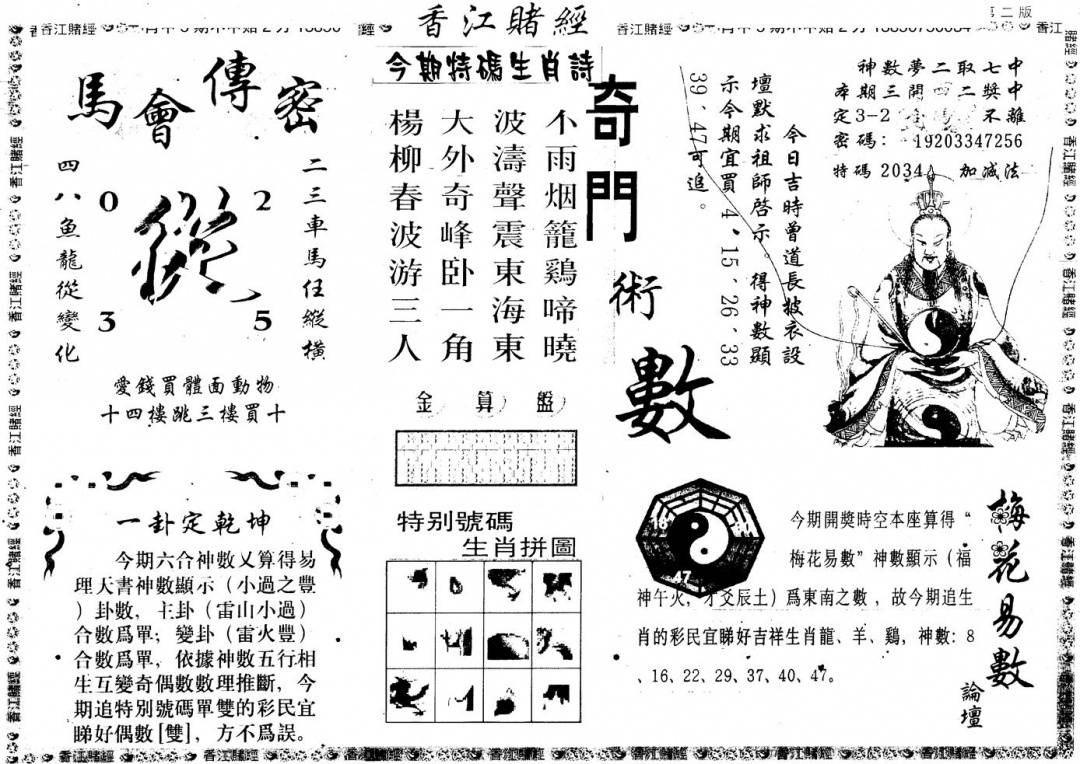 香江賭經
第二版
馬會傳密
二三車馬任縱橫
四八魚龍從變化
0 2
從
3 5
愛錢買體面動物
十四樓跳三樓買十
今期特碼生肖詩
不雨烟籠鷄啼曉
波濤聲震東海東
大外奇峰卧一角
楊柳春波游三人
金算盤
特别號碼
生肖拼圖
奇門
術
數
今日吉時曾道長披衣設
壇默求祖師啓示。得神數顯
示今期宜買 4、15、26、33
39、47可追。
神數夢二取七中
本期三開四二獎中
定3-2合 不離
密碼： 19203347256
特碼 2034 加減法
一卦定乾坤
今期六合神數又算得易
理天書神數顯示（小過之豐
）卦數，主卦（雷山小過）
合數爲單；變卦（雷火豐）
合數爲單，依據神數五行相
生互變奇偶數數理推斷，今
期追特别號碼單雙的彩民宜
睇好偶數[雙]，方不爲誤。
47
今期開獎時空本座算得“
梅花易數”神數顯示（福
神午火，才爻辰土）爲東南之數，故今期追生
肖的彩民宜睇好吉祥生肖龍、羊、鷄，神數：8
、16、22、29、37、40、47。
梅花易數
論壇